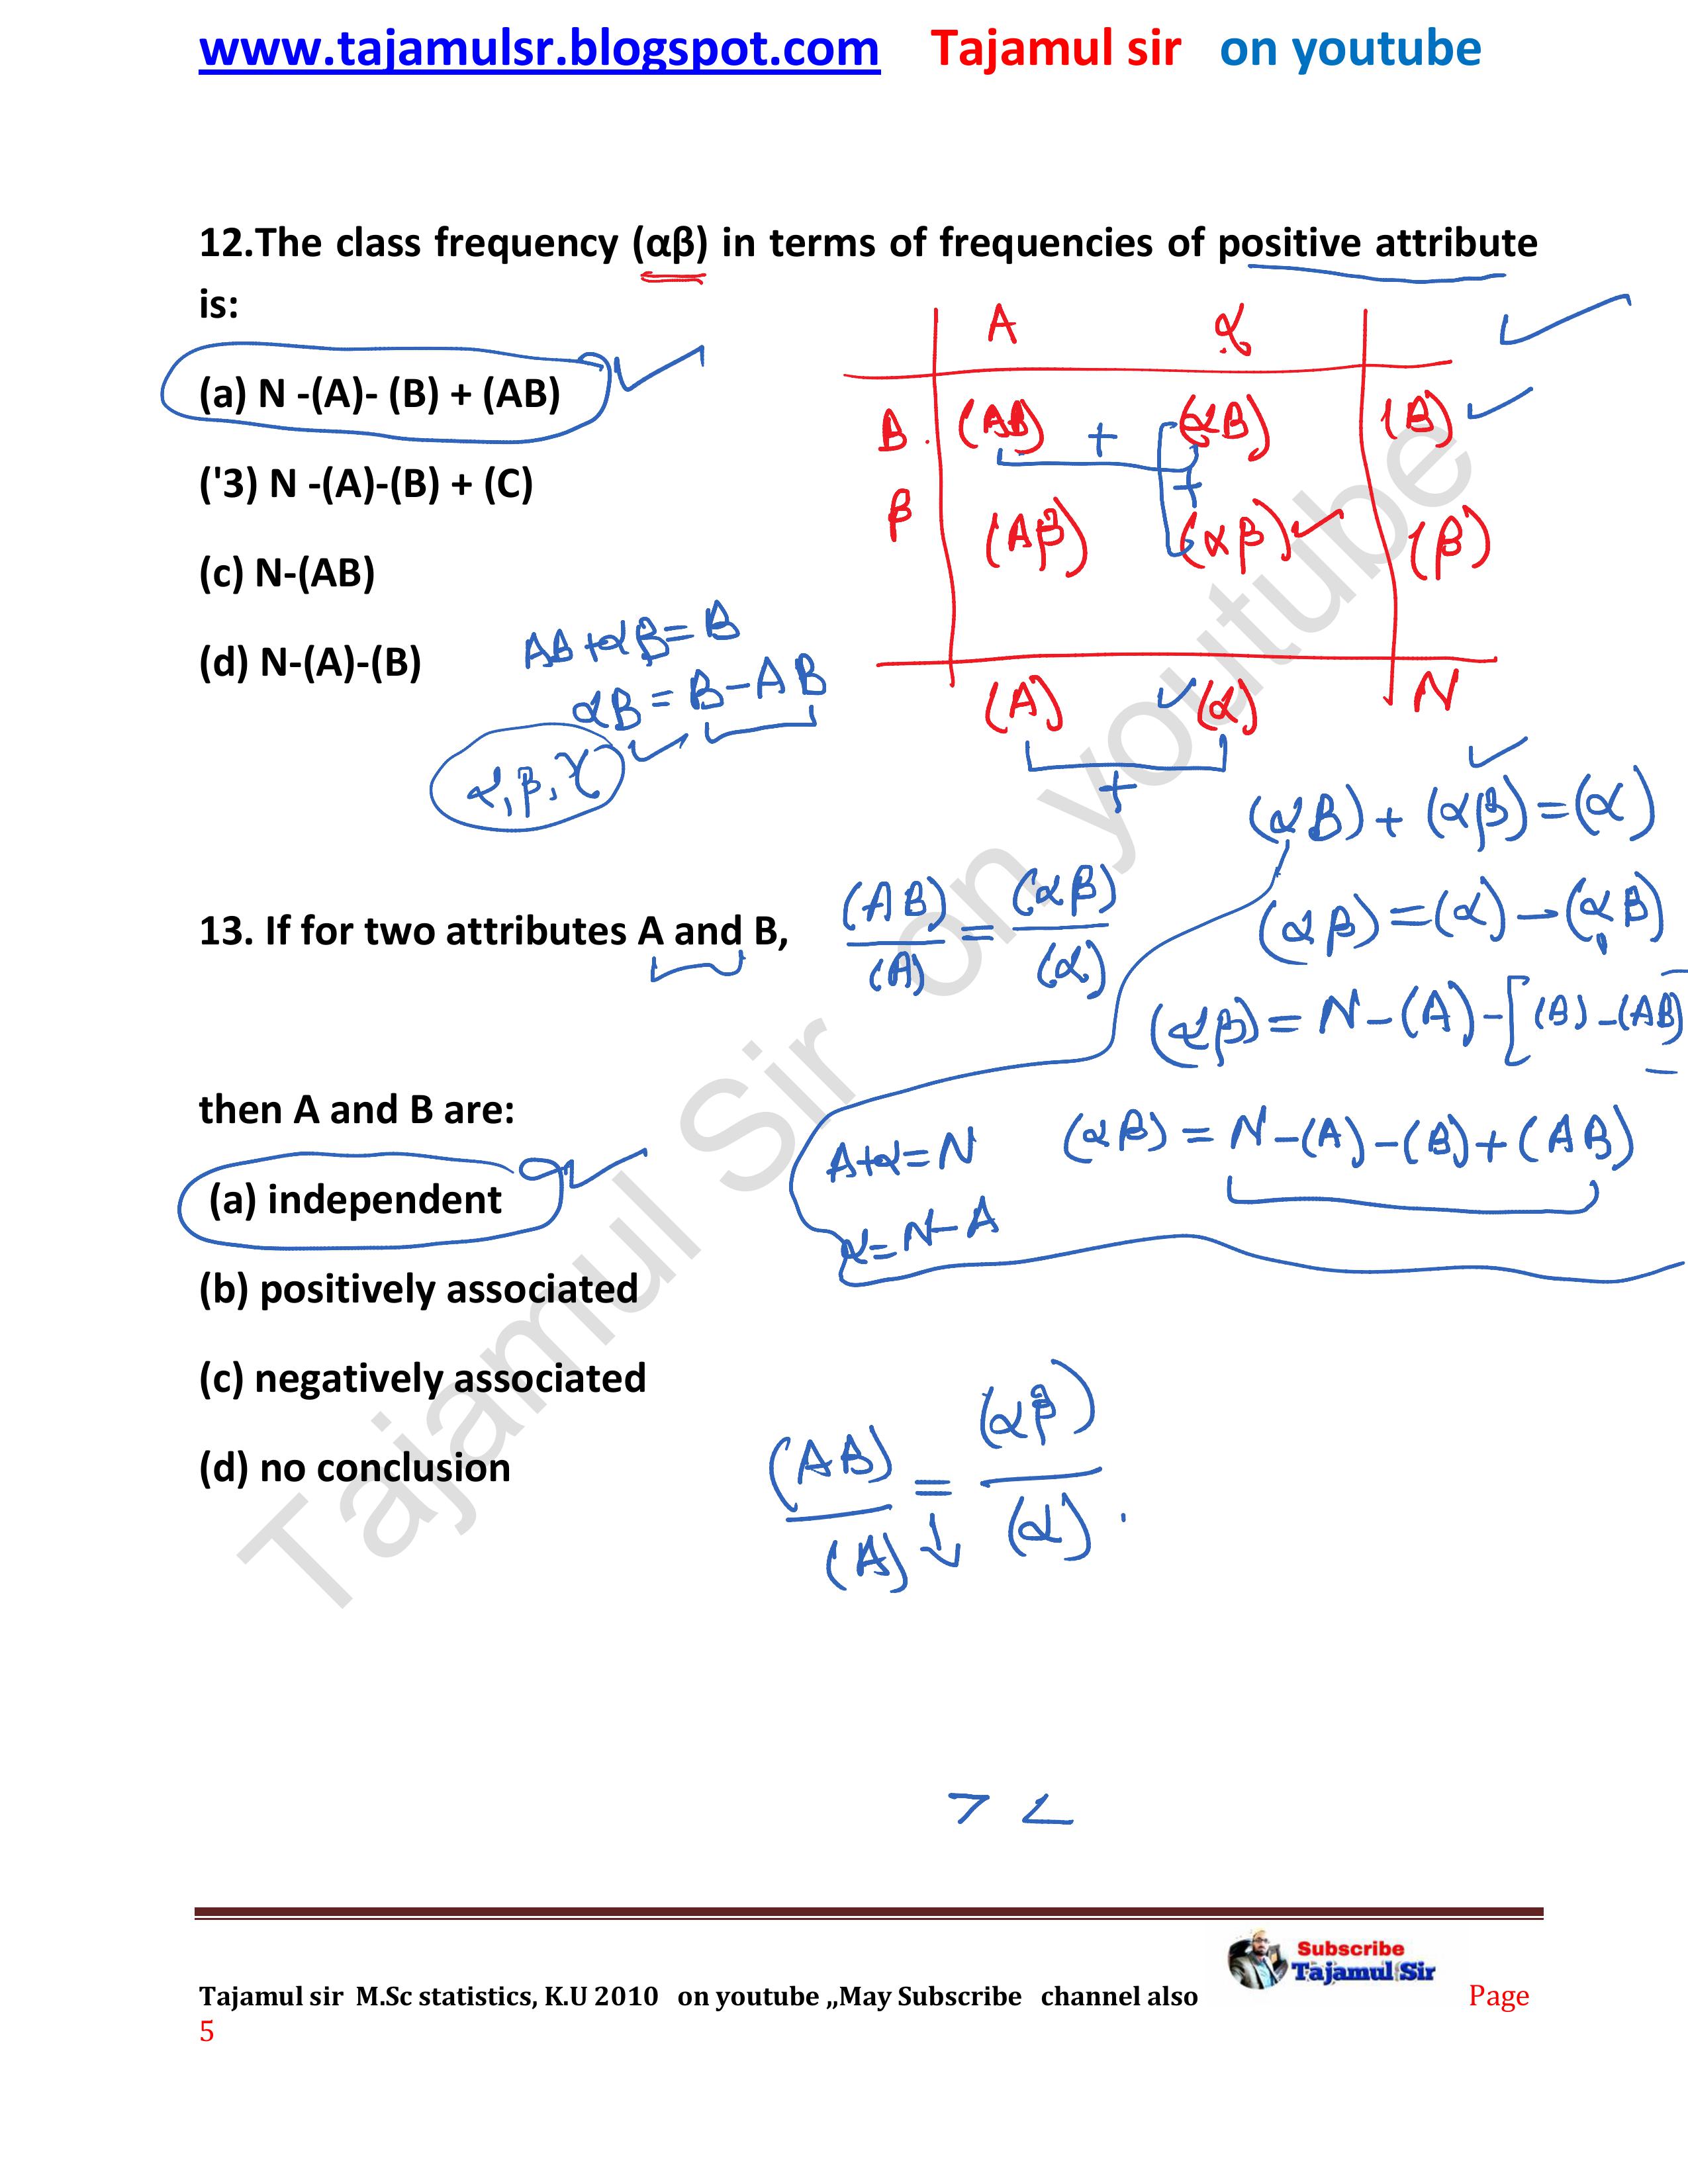 www.tajamulsr.blogspot.com Tajamul sir on youtube
12.The class frequency (αβ) in terms of frequencies of positive attribute
is:
(a) N -(A)- (B) + (AB)
('3) N -(A)-(B) + (C)
(c) N-(AB)
(d) N-(A)-(B)
A α
B (AB) + (αB) (B)
+
β (Aβ) (αβ) (β)
(A) (α) N
+
AB+αB=B
αB=B-AB
α, β, γ
(αB)+(αβ)=(α)
(αβ)=(α)-(αB)
(αβ)=N-(A)-[(B)-(AB)
(αβ)=N-(A)-(B)+(AB)
A+α=N
α=N-A
13. If for two attributes A and B, (AB)/(A) = (αβ)/(α)
then A and B are:
(a) independent
(b) positively associated
(c) negatively associated
(d) no conclusion
(AB)/(A) = (αβ)/(α).
> <
Tajamul Sir on youtube
Subscribe
Tajamul Sir
Tajamul sir M.Sc statistics, K.U 2010 on youtube ,,May Subscribe channel also Page
5